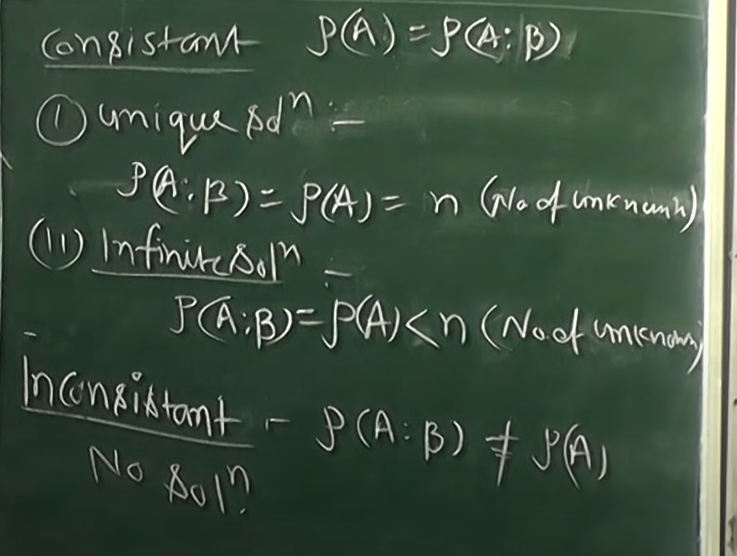 Consistant ρ(A) = ρ(A:B)
(I) unique solⁿ :-
ρ(A:B) = ρ(A) = n (No of unknown)
(II) Infinite Solⁿ :-
ρ(A:B) = ρ(A) < n (No. of unknown)
Inconsistant - ρ(A:B) ≠ ρ(A)
No Solⁿ.